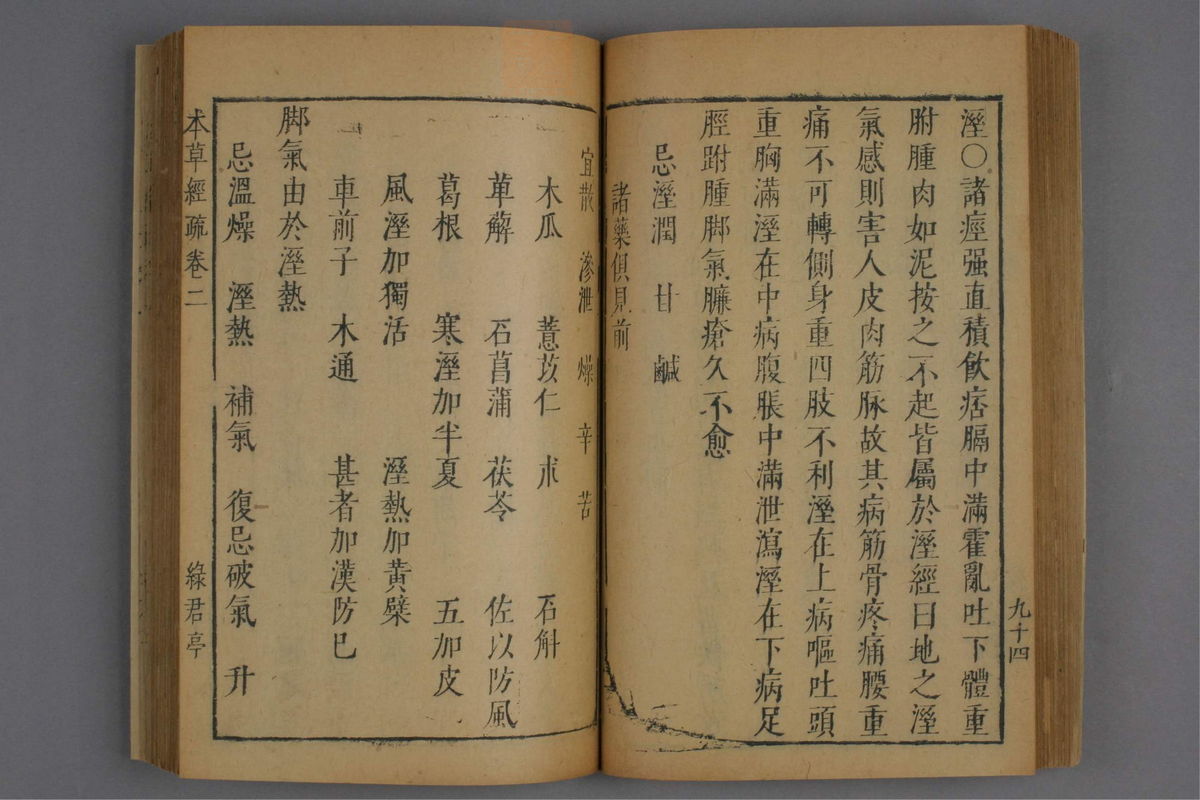 溼〇諸痙强直積飲痞膈中滿霍亂吐下體重
胕腫肉如泥按之不起皆屬於溼經曰地之溼
氣感則害人皮肉筋脉故其病筋骨疼痛腰重
痛不可轉側身重四肢不利溼在上病嘔吐頭
重胸滿溼在中病腹脹中滿泄瀉溼在下病足
脛跗腫脚氣臁瘡久不愈
忌溼潤　甘　鹹
諸藥俱見前
九十四
宜散　滲泄　燥　辛　苦
木瓜　薏苡仁　朮　石斛
萆薢　石菖蒲　茯苓　佐以防風
葛根　寒溼加半夏　五加皮
風溼加獨活　溼熱加黄檗
車前子　木通　甚者加漢防巳
脚氣由於溼熱
忌溫燥　溼熱　補氣　復忌破氣　升
本草經疏卷二
綠君亭